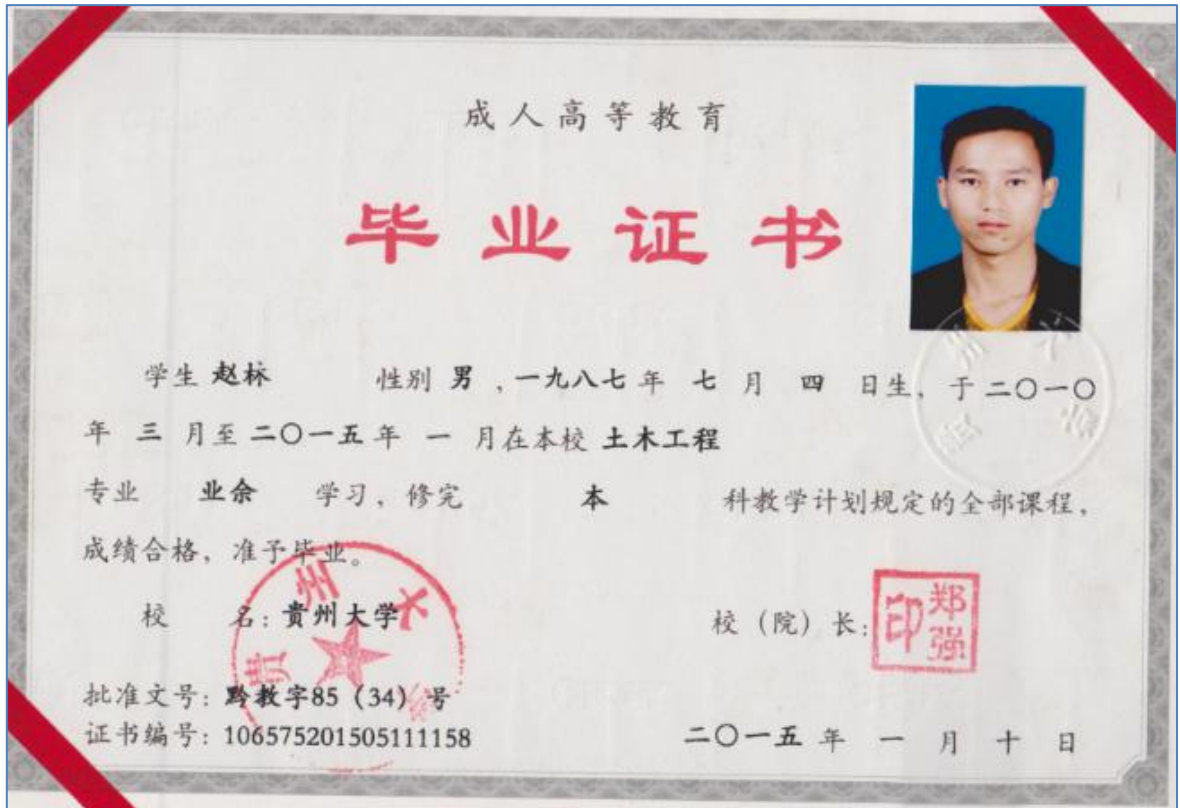 成人高等教育
毕业证书
学生 赵林 性别 男 ,一九八七年 七 月 四 日生, 于二〇一〇
年 三 月至二〇一五年 一 月在本校 土木工程
专业 业余 学习, 修完 本 科教学计划规定的全部课程,
成绩合格, 准予毕业。
校 名: 贵州大学
校 (院) 长:
郑强印
批准文号: 黔教字85 (34) 号
证书编号: 106575201505111158
二〇一五 年 一 月 十 日